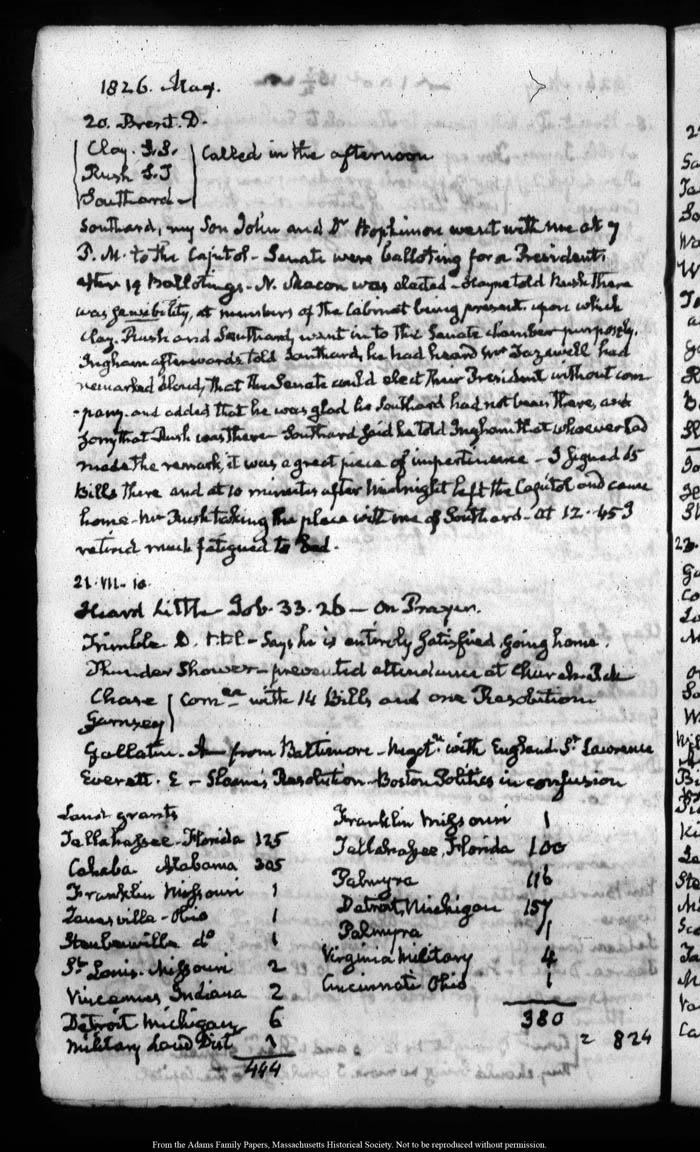 1826. May.
20. Brent. D.
Clay. S.S.
Rush S.T
Southard
Called in the afternoon
Southard, my Son John and Dr Hophinson went with me at 7
P.M. to the Capitol - Senate were balloting for a President;
after 19 Ballotings - N. Macon was elected - Hayne told Rush there
was sensibility, at members of the Cabinet being present. upon which
Clay. Rush and Southard, went in to the Senate chamber purposely.
Ingham afterwards told Southard, he had heard Mr Tazewell had
remarked aloud, that the Senate could elect their President without com
-pany. and added that he was glad he Southard had not been there, and
sorry that Rush was there - Southard said he told Ingham that whoever had
made the remark, it was a great piece of impertinence - I signed 65
Bills there and at 10 minutes after Midnight left the Capitol and came
home - Mr Rush taking the place with me of Southard - at 12.45
retired much fatigued to Bed.
21. VII.
Heard Little - Job. 33.26 - On Prayer.
Trimble D. - Says he is entirely satisfied, going home.
Thunder Shower - prevented attendance at Church.
Chase
Garnsey
Comee with 14 Bills and one Resolution
Gallatin. A - from Baltimore - Negotn with England. St Lawrence
Everett. E - Sloane's Resolution - Boston Politics in confusion
Land grants
Tallahassee - Florida 125
Cahaba Alabama 305
Franklin Missouri 1
Zanesville - Ohio 1
Steubenville do 1
St Louis. Missouri 2
Vincennes Indiana 2
Detroit Michigan 6
Military Land Dist 1
444
Franklin Missouri 1
Tallahassee, Florida 100
Palmyra 116
Detroit, Michigan 157
Palmyra 1
Virginia Military 4
Cincinnati Ohio 1
380
2 824
From the Adams Family Papers, Massachusetts Historical Society. Not to be reproduced without permission.